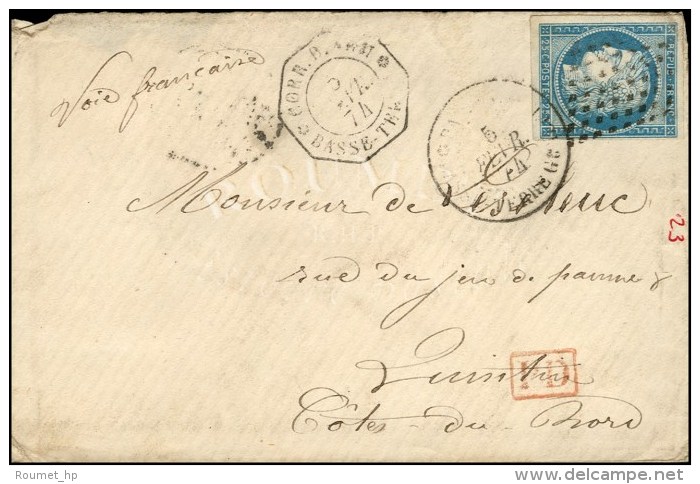 Voie française
CORR. D. ARM
5
74
BASSE-TER
5
FEVR.
74
25 REPUB. FRANC. 25
POSTES
23
Monsieur de
rue du jeu de paume
PD
Quintin
Côtes-du-Nord
Roumet_hp
www.delcampe.net